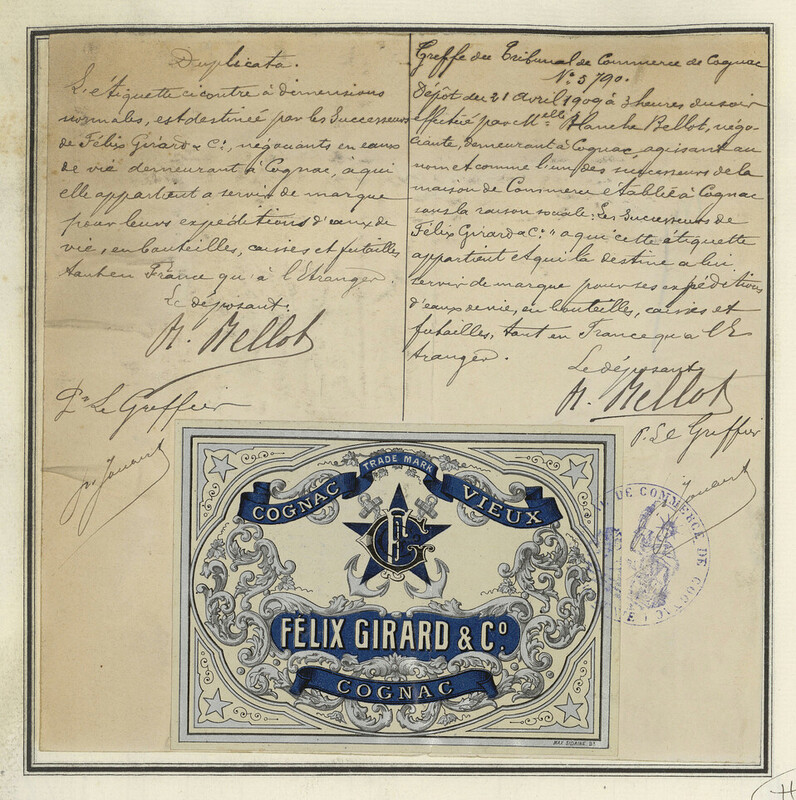 Duplicata.
L'étiquette ci contre à dimensions
normales, est destinée par les Successeurs
de Félix Girard & Cie, négociants en eaux
de vie demeurant à Cognac, à qui
elle appartient a servir de marque
pour leurs expéditions d'eaux de
vie, en bouteilles, caisses et futailles
tant en France qu'à l'Etranger.
Le déposant.
H. Bellot
Pr Le Greffier
Greffe du Tribunal de Commerce de Cognac
N° 5790.
Dépôt du 21 Avril 1909 à 3 heures du soir
effectué par Melle Blanche Bellot, négo-
ciante, demeurant à Cognac agissant au
nom et comme l'un des successeurs de la
maison de Commerce établie à Cognac
sous la raison sociale: Les Successeurs de
Félix Girard & Co" a qui cette étiquette
appartient et qui la destine a lui
servir de marque pour ses expéditions
d'eaux de vie, en bouteilles, caisses et
futailles, tant en France qu'a l'E
tranger.
Le déposant
H. Bellot
P. Le Greffier
TRADE MARK
COGNAC VIEUX
FÉLIX GIRARD & Co.
COGNAC
DE COMMERCE DE COGNAC